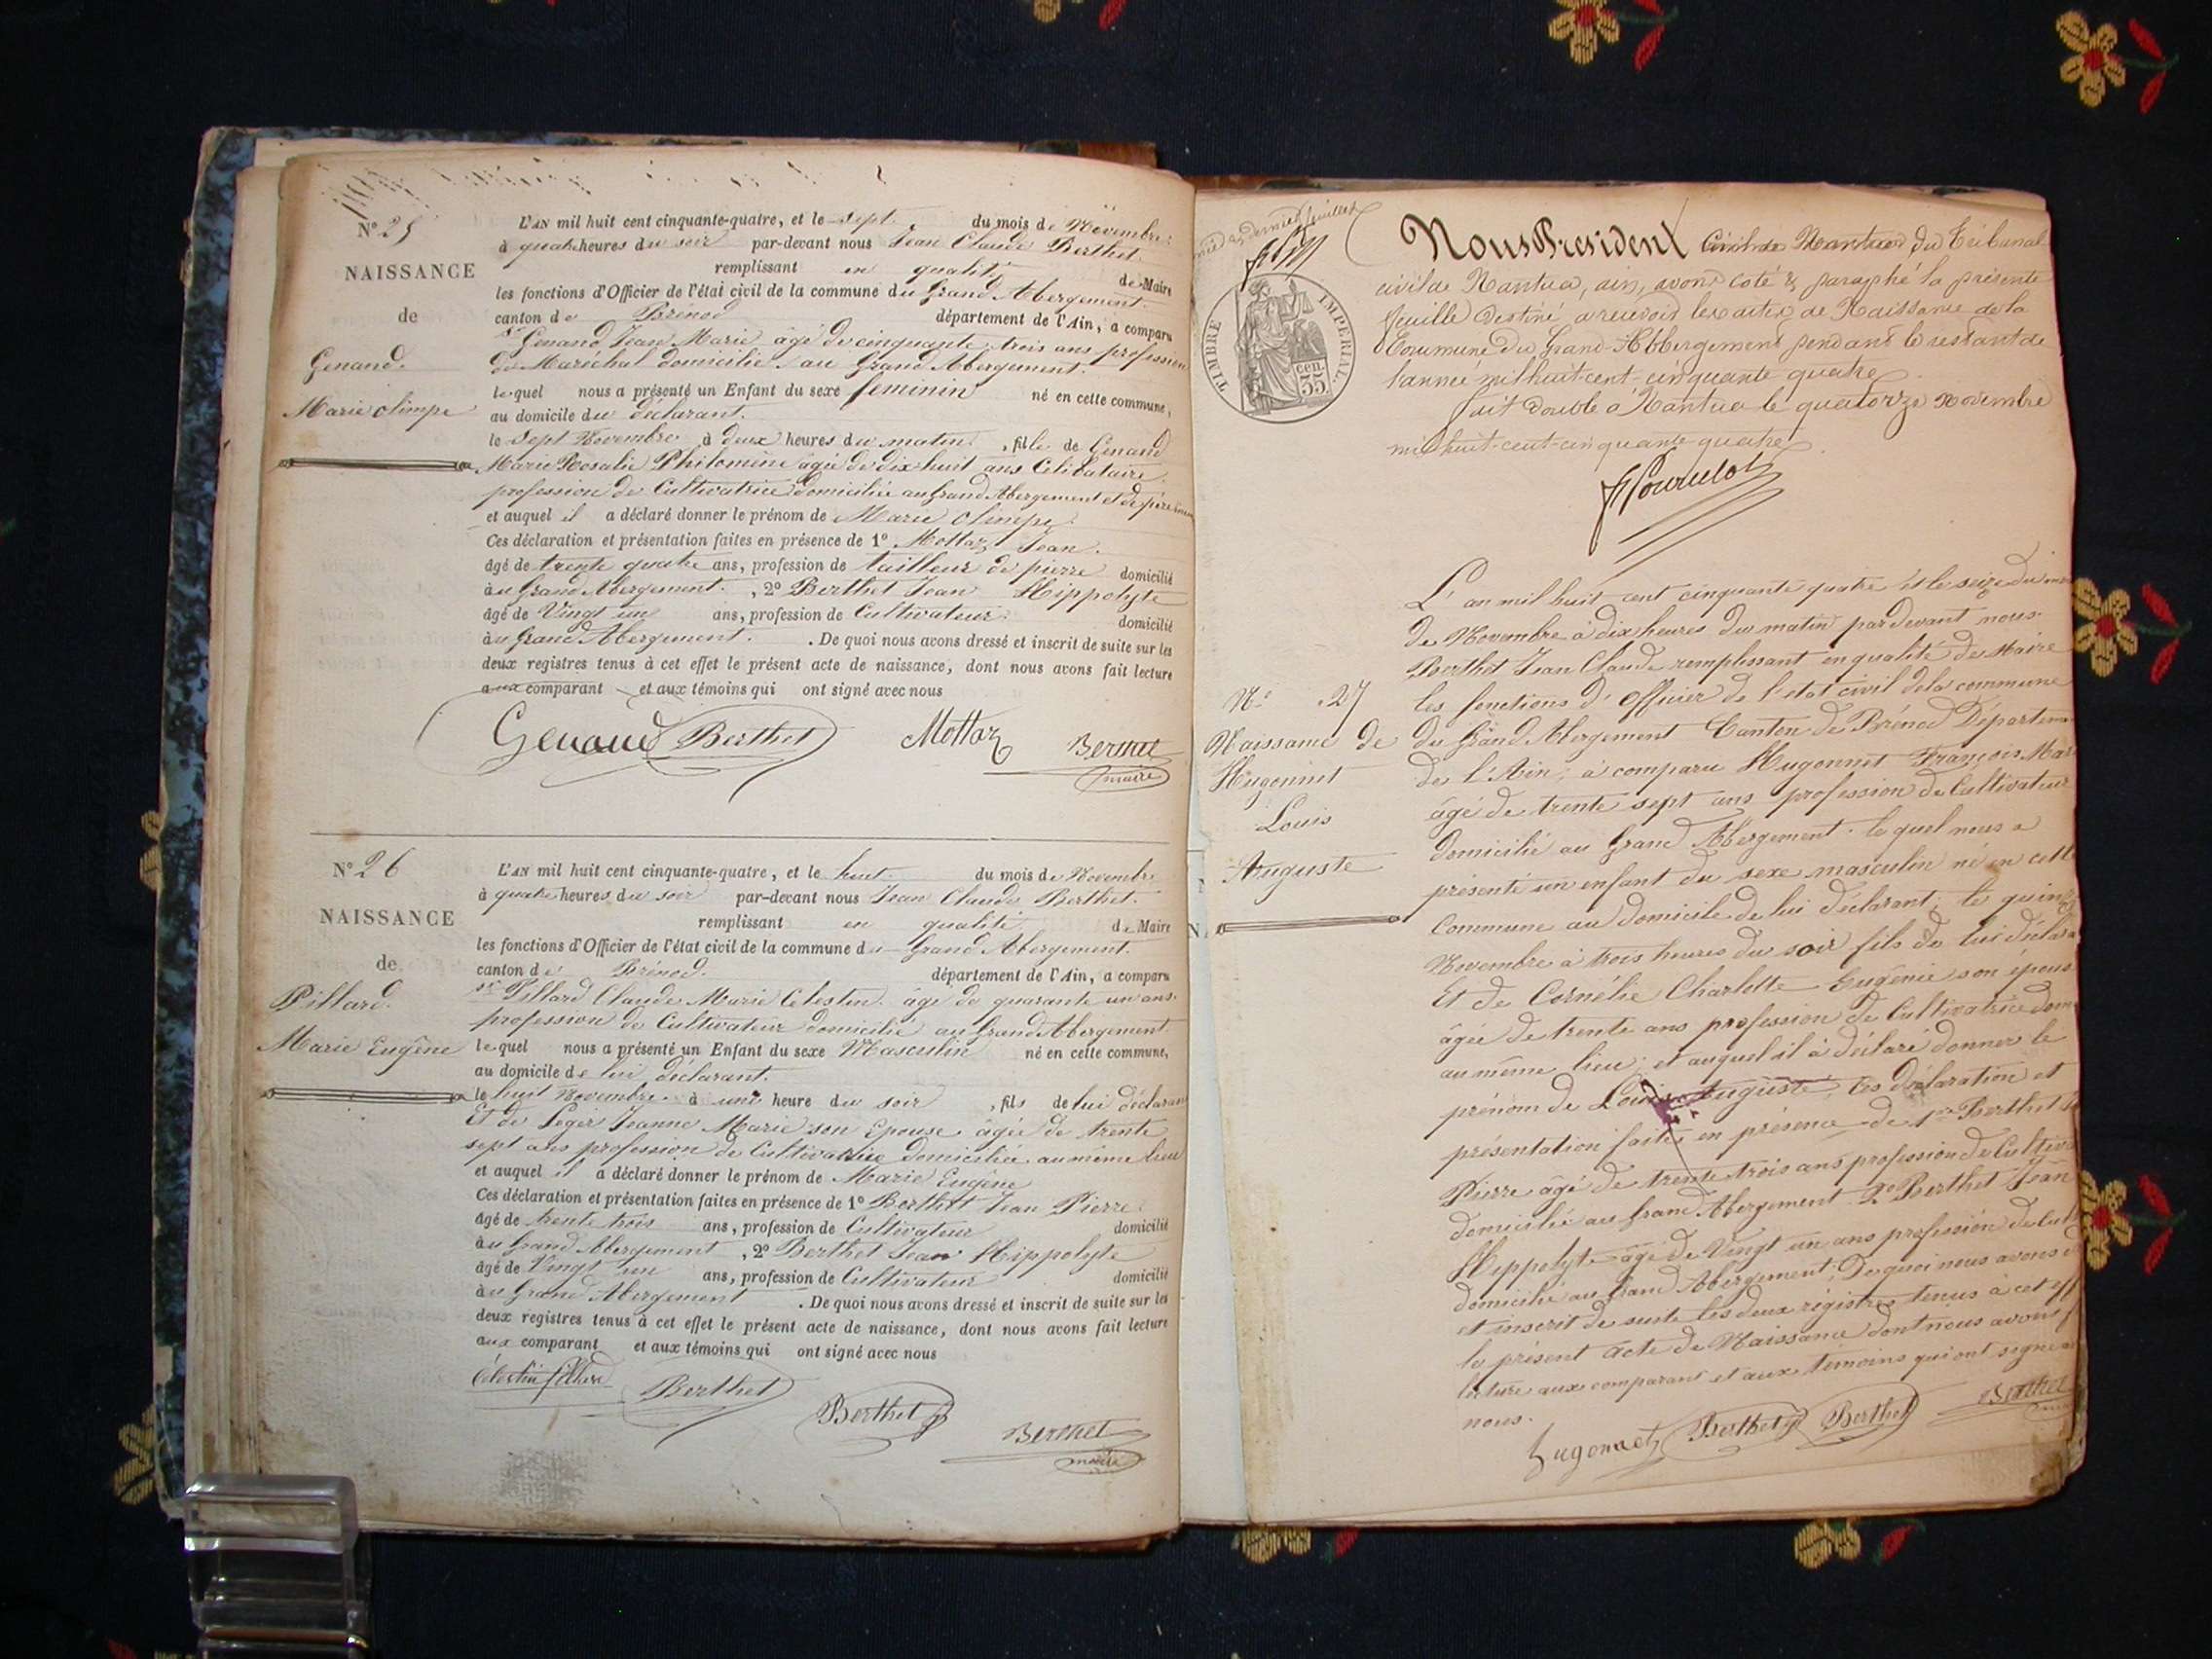 N° 25
NAISSANCE
de
Genand.
Marie olimpe
L'AN mil huit cent cinquante-quatre, et le sept. du mois de Novembre.
à quatre heures du soir par-devant nous Jean Claude Berthet
remplissant en qualité de Maire
les fonctions d'Officier de l'état civil de la commune du Grand Abergement.
canton de Brénod département de l'Ain, a comparu
sr Genand Jean Marie âgé de cinquante trois ans profession
de Maréchal domicilié au Grand Abergement.
lequel nous a présenté un Enfant du sexe feminin né en cette commune,
au domicile du déclarant.
le sept Novembre à deux heures du matin, fille de Genand
Marie Rosalie Philomène âgée de dix huit ans Célibataire
profession de Cultivatrice domiciliée au Grand Abergement et de père
et auquel il a déclaré donner le prénom de Marie olimpe.
Ces déclaration et présentation faites en présence de 1° Mottaz Jean.
âgé de trente quatre ans, profession de tailleur de pierre domicilié
au Grand Abergement. , 2° Berthet Jean Hippolyte
âgé de Vingt un ans, profession de Cultivateur domicilié
au Grand Abergement. . De quoi nous avons dressé et inscrit de suite sur les
deux registres tenus à cet effet le présent acte de naissance, dont nous avons fait lecture
aux comparant et aux témoins qui ont signé avec nous
Genand Berthet Mottaz Berthet
maire
N° 26
NAISSANCE
de
Pillard.
Marie Eugène
L'AN mil huit cent cinquante-quatre, et le huit du mois de Novembre
à quatre heures du soir par-devant nous Jean Claude Berthet.
remplissant en qualité de Maire
les fonctions d'Officier de l'état civil de la commune du Grand Abergement.
canton de Brénod. département de l'Ain, a comparu
sr Pillard Claude Marie Celestin. âgé de quarante un ans.
profession de Cultivateur domicilié au Grand Abergement.
lequel nous a présenté un Enfant du sexe Masculin né en cette commune,
au domicile de lui déclarant.
le huit Novembre. à une heure du soir , fils de lui déclarant
Et de Leger Jeanne Marie son Epouse âgée de trente
sept ans profession de Cultivatrice domiciliée au même lieu
et auquel il a déclaré donner le prénom de Marie Eugène
Ces déclaration et présentation faites en présence de 1° Berthet Jean Pierre
âgé de trente trois ans, profession de Cultivateur domicilié
au Grand Abergement , 2° Berthet Jean Hippolyte
âgé de Vingt un ans, profession de Cultivateur domicilié
au Grand Abergement . De quoi nous avons dressé et inscrit de suite sur les
deux registres tenus à cet effet le présent acte de naissance, dont nous avons fait lecture
aux comparant et aux témoins qui ont signé avec nous
Célestin Pillard Berthet Berthet Berthet
maire
et dernier feuillet
TIMBRE IMPERIAL.
35 cen.
Nous President Civil de Nantua du Tribunal
civil de Nantua, ain, avons coté & paraphé la présente
feuille Destiné a recevoir les actes de Naissance de la
Commune du Grand-Abbergement pendant le restant de
l'année mil huit-cent-cinquante quatre
fait double a Nantua le quatorze Novembre
mil huit-cent-cinquante-quatre
N° 27
Naissance de
Hugonnet
Louis
Auguste
L'an mil huit cent cinquante quatre et le seize du mois
de Novembre à dix heures du matin par devant nous
Berthet Jean Claude remplissant en qualité de Maire
les fonctions d'Officier de l'état civil de la commune
du Grand Abergement Canton de Brénod Départem
de l'Ain, à comparu Hugonnet François Mar
âgé de trente sept ans profession de Cultivateur
domicilié au Grand Abergement. le quel nous a
présenté un enfant du sexe masculin né en cette
Commune au domicile de lui déclarant, le quinze
Novembre à trois heures du soir fils de lui déclara
Et de Cornélie Charlotte Eugénie son épouse
âgée de trente ans profession de Cultivatrice dom
au même lieu et auquel il à déclaré donner le
prénom de Louis Auguste Ces déclaration et
présentation faites en présence de 1° Berthet
Pierre âgé de trente trois ans profession de Cultiva
domicilié au Grand Abergement 2° Berthet Jean
Hippolyte âgé de Vingt un ans profession de Cult
domicilié au Grand Abergement, De quoi nous avons
et inscrit de suite les deux régistres tenus à cet eff
le présent acte de Naissance dont nous avons f
lecture aux comparant et aux témoins qui ont signé
nous.
hugonnet Berthet Berthet Berthet